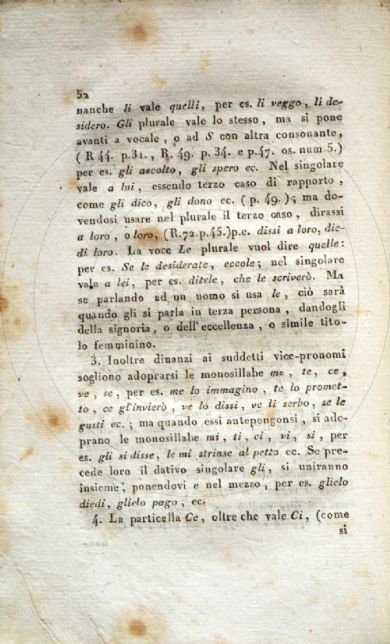 52
nanche li vale quelli, per es. li veggo, li de-
sidero. Gli plurale vale lo stesso, ma si pone
avanti a vocale, o ad S con altra consonante,
(R 44. p. 31., R. 49. p. 34. e p. 47. os. num 5.)
per es. gli ascolto, gli spero ec. Nel singolare
vale a lui, essendo terzo caso di rapporto,
come gli dico, gli dono ec. (p. 49.); ma do-
vendosi usare nel plurale il terzo caso, dirassi
a loro, o loro, (R. 72. p. 45.) p.e. dissi a loro, die-
di loro. La voce Le plurale vuol dire quelle:
per es. Se le desiderate, eccole; nel singolare
vale a lei, per es. ditele, che le scriverò. Ma
se parlando ad un uomo si usa le, ciò sarà
quando gli si parla in terza persona, dandogli
della signoria, o dell'eccellenza, o simile tito-
lo femminino.
3. Inoltre dinanzi ai suddetti vice-pronomi
sogliono adoprarsi le monosillabe me, te, ce,
ve, se, per es. me lo immagino, te lo promet-
to, ce gl'invierò, ve lo dissi, ve li serbo, se le
gusti ec.; ma quando essi antepongonsi, si ado-
prano le monosillabe mi, ti, ci, vi, si, per
es. gli si disse, le mi strinse al petto ec. Se pre-
cede loro il dativo singolare gli, si uniranno
insieme, ponendovi e nel mezzo, per es. glielo
diedi, glielo pago, ec.
4. La particella Ce, oltre che vale Ci, (come
si